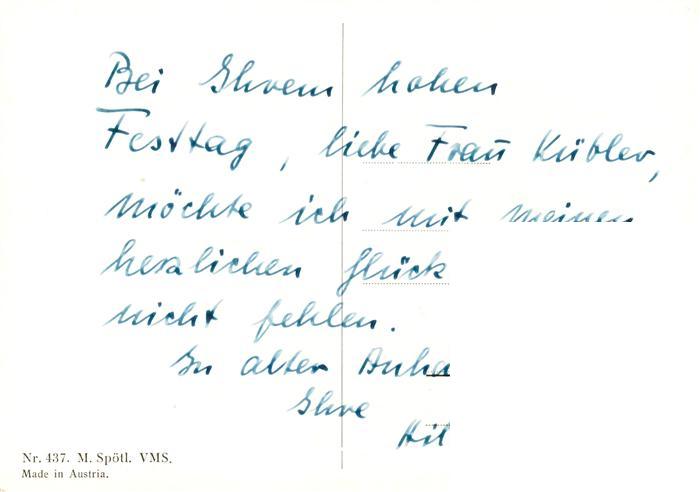 Bei Ihrem hohen
Festtag, liebe Frau Kübler,
möchte ich mit meinen
herzlichen Glück
nicht fehlen.
In alter Anhä
Ihre
Hil
Nr. 437. M. Spötl. VMS.
Made in Austria.